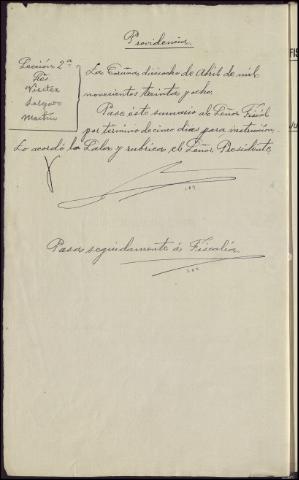 Providencia
Sección 2ª
Srs
Martín
La Coruña dieciocho de Abril de mil
novecientos treinta y ocho.
Pase este sumario al Señor Fiscal
por termino de cinco dias para instrucción.
Lo acordó la Sala y rubrica el Señor Presidente
Pasa seguidamente á Fiscalia